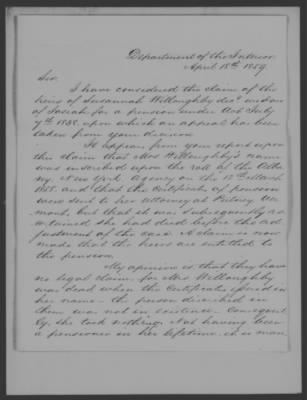 Department of the Interior
April 18th 1859
Sir.
I have considered the claim of the
heirs of Susannah Willoughby decd widow
of Josiah for a pension under Act July
7th 1838. upon which an appeal has been
taken from your decision
It appears from your report upon
this claim that Mrs Willoughby's name
was inscribed upon the roll of the Alba
ny. New York Agency on the 12th March
1855. and that the Certificate of pension
were sent to her attorney at Putney Ver
mont, but that it was subsequently as
certained she had died before the ad
justment of the case. A claim is now
made that the heirs are entitled to
the pension.
My opinion is that they have
no legal claim for Mrs Willoughby
was dead when the Certificate issued in
her name - the person described in
them was not in existence - Consequent
ly, she took nothing. Not having been
a pensioner in her lifetime, it is man